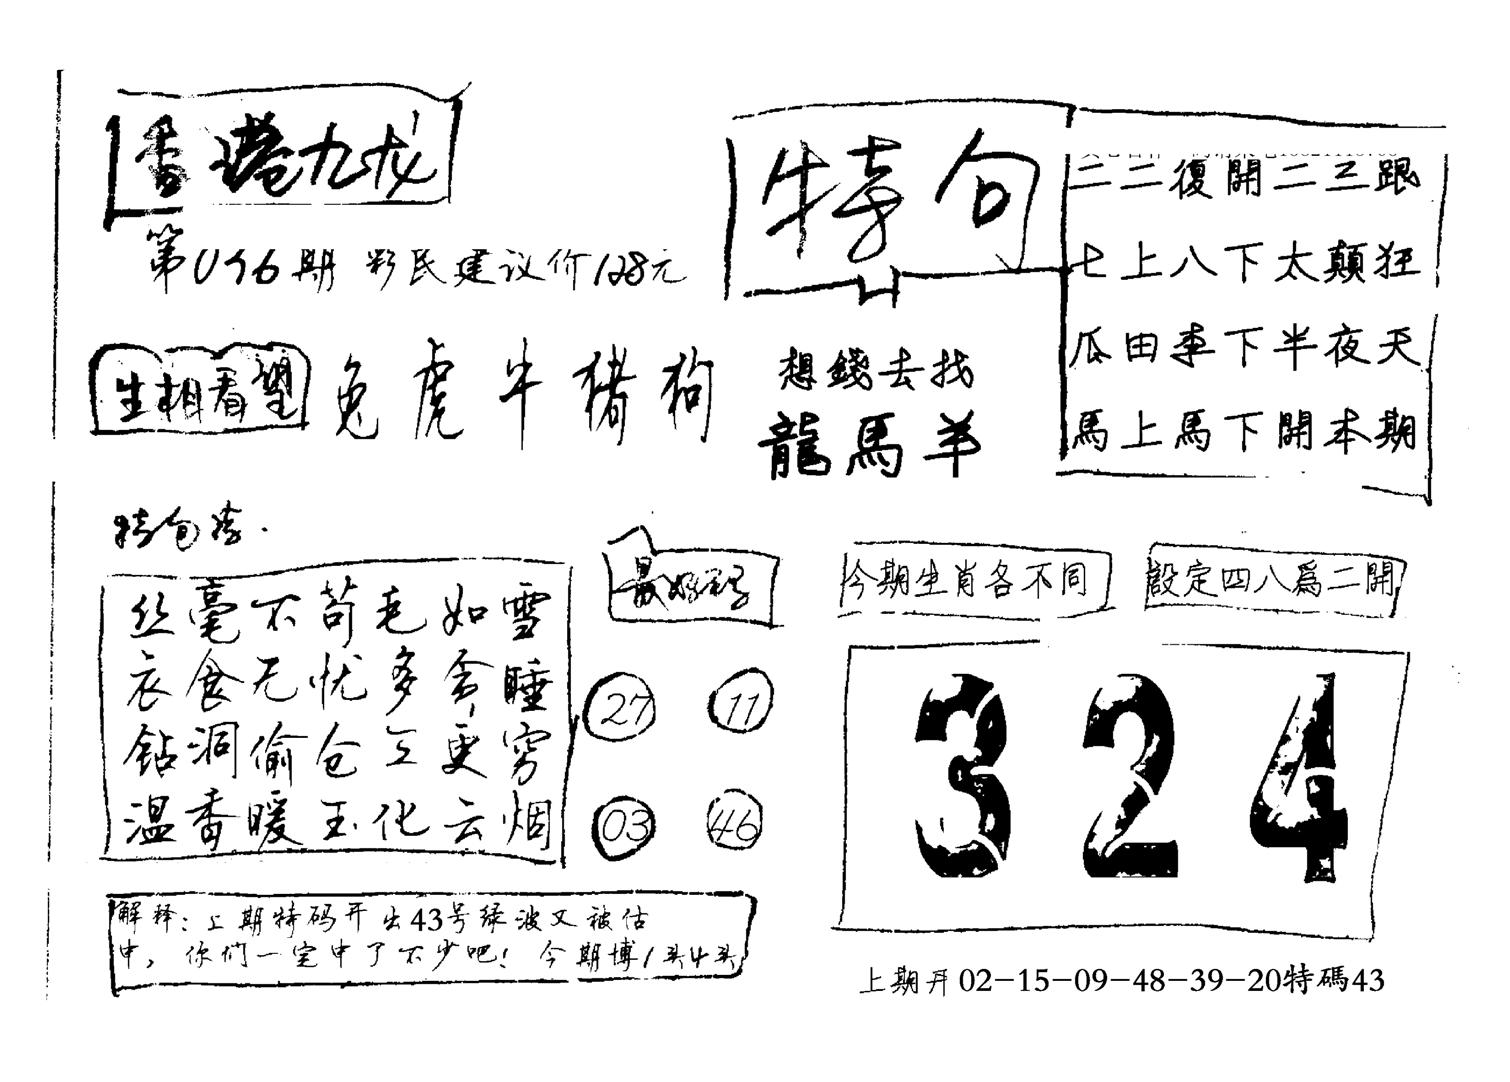 香港九龙
第096期 彩民建议价128元
特句
二二復開二三跟
七上八下太顛狂
瓜田李下半夜天
馬上馬下開本期
生相看望 兔虎牛猪狗
想錢去找
龍馬羊
特句诗.
丝毫不苟毛如雪
衣食无忧多贪睡
钻洞偷仓工更穷
温香暖玉化云烟
最好码
27 11
03 46
今期生肖各不同
設定四八爲二開
324
解释:上期特码开出43号绿波又被估
中,你们一定中了不少吧!今期博1头4头
上期开02-15-09-48-39-20特碼43